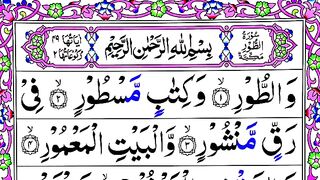 سُوْرَةُ الطُّوْرِ مَكِّيَّةٌ
بِسْمِ اللّٰهِ الرَّحْمٰنِ الرَّحِيْمِ
اٰيَاتُهَا ٤٩ رُكُوْعَاتُهَا ٢
وَالطُّوْرِ ۙ﴿١﴾ وَكِتٰبٍ مَّسْطُوْرٍ ۙ﴿٢﴾ فِيْ
رَقٍّ مَّنْشُوْرٍ ۙ﴿٣﴾ وَّالْبَيْتِ الْمَعْمُوْرِ ۙ﴿٤﴾